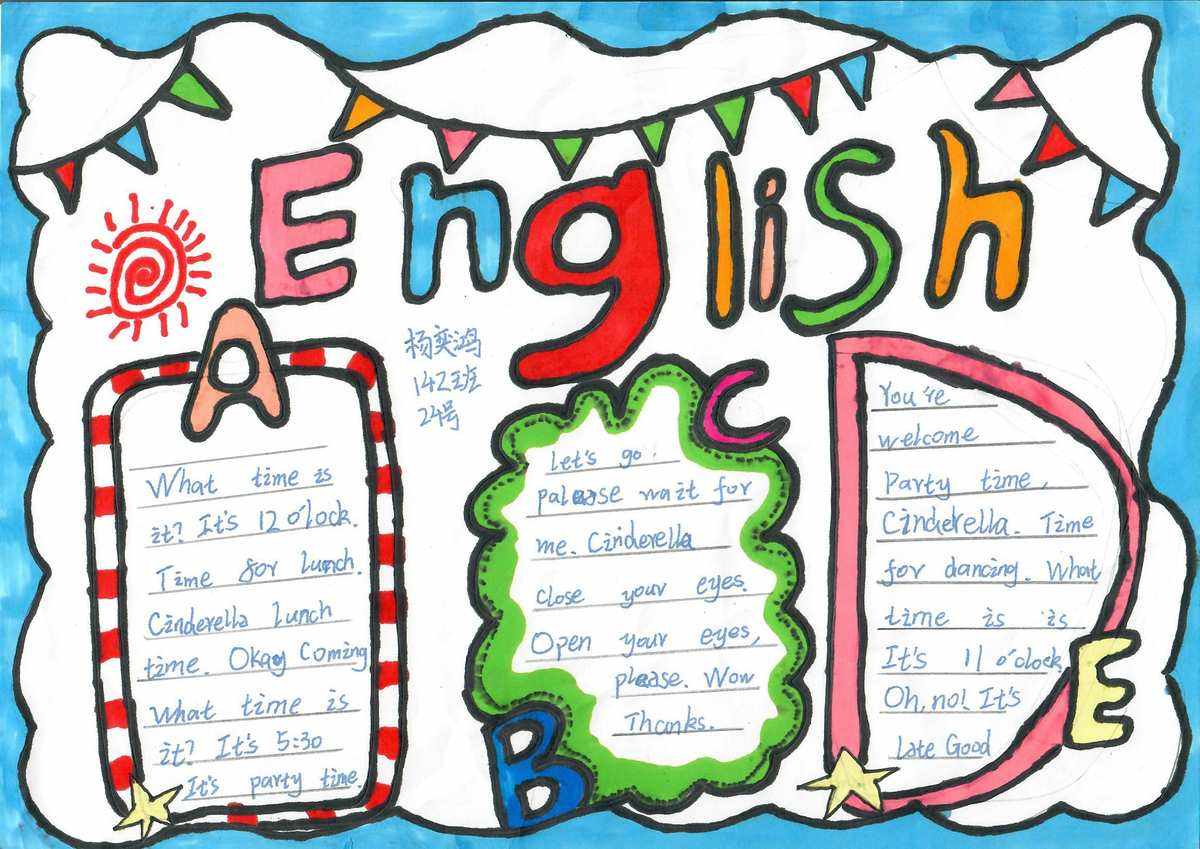 English
杨奕鸿
142班
24号
A
What time is
it? It's 12 o'lock.
Time for lunch.
Cinderella lunch
time. Okay Coming
What time is
it? It's 5:30
It's party time.
B
C
Let's go.
please wait for
me. Cinderella
close your eyes.
Open your eyes,
please. Wow
Thanks.
D
You're
welcome
Party time,
Cinderella. Time
for dancing. What
time is is
It's 11 o'clock
Oh, no! It's
Late Good
E